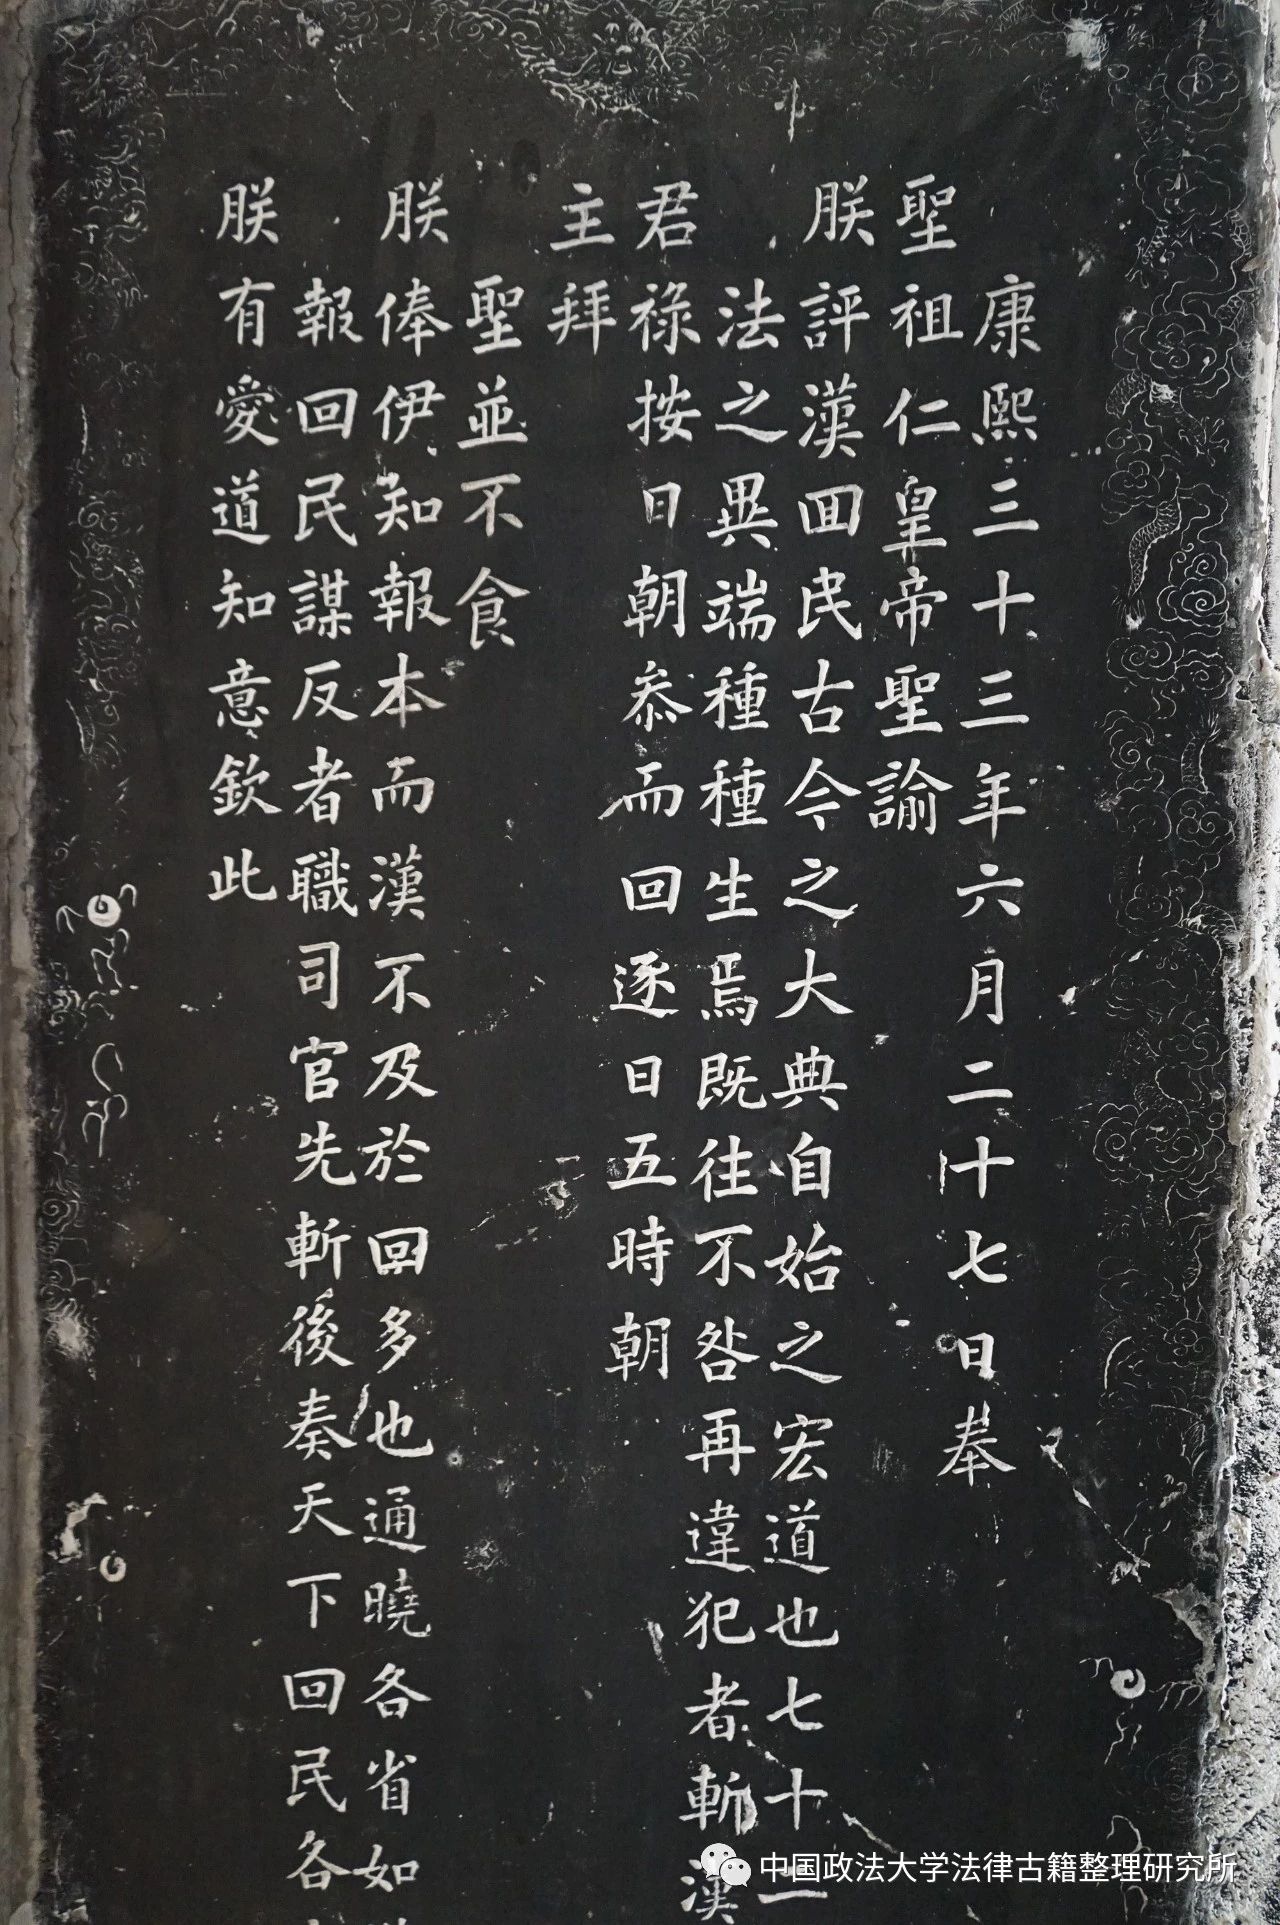 康熙三十三年六月二十七日奉
聖祖仁皇帝聖諭
朕評漢回民古今之大典自始之宏道也七十二
法之異端種種生焉既往不咎再違犯者斬漢
君祿按日朝叅而回逐日五時朝
主拜
聖並不食
朕俸伊知報本而漢不及於回多也通曉各省如
報回民謀反者職司官先斬後奏天下回民各
朕有愛道知意欽此
中国政法大学法律古籍整理研究所